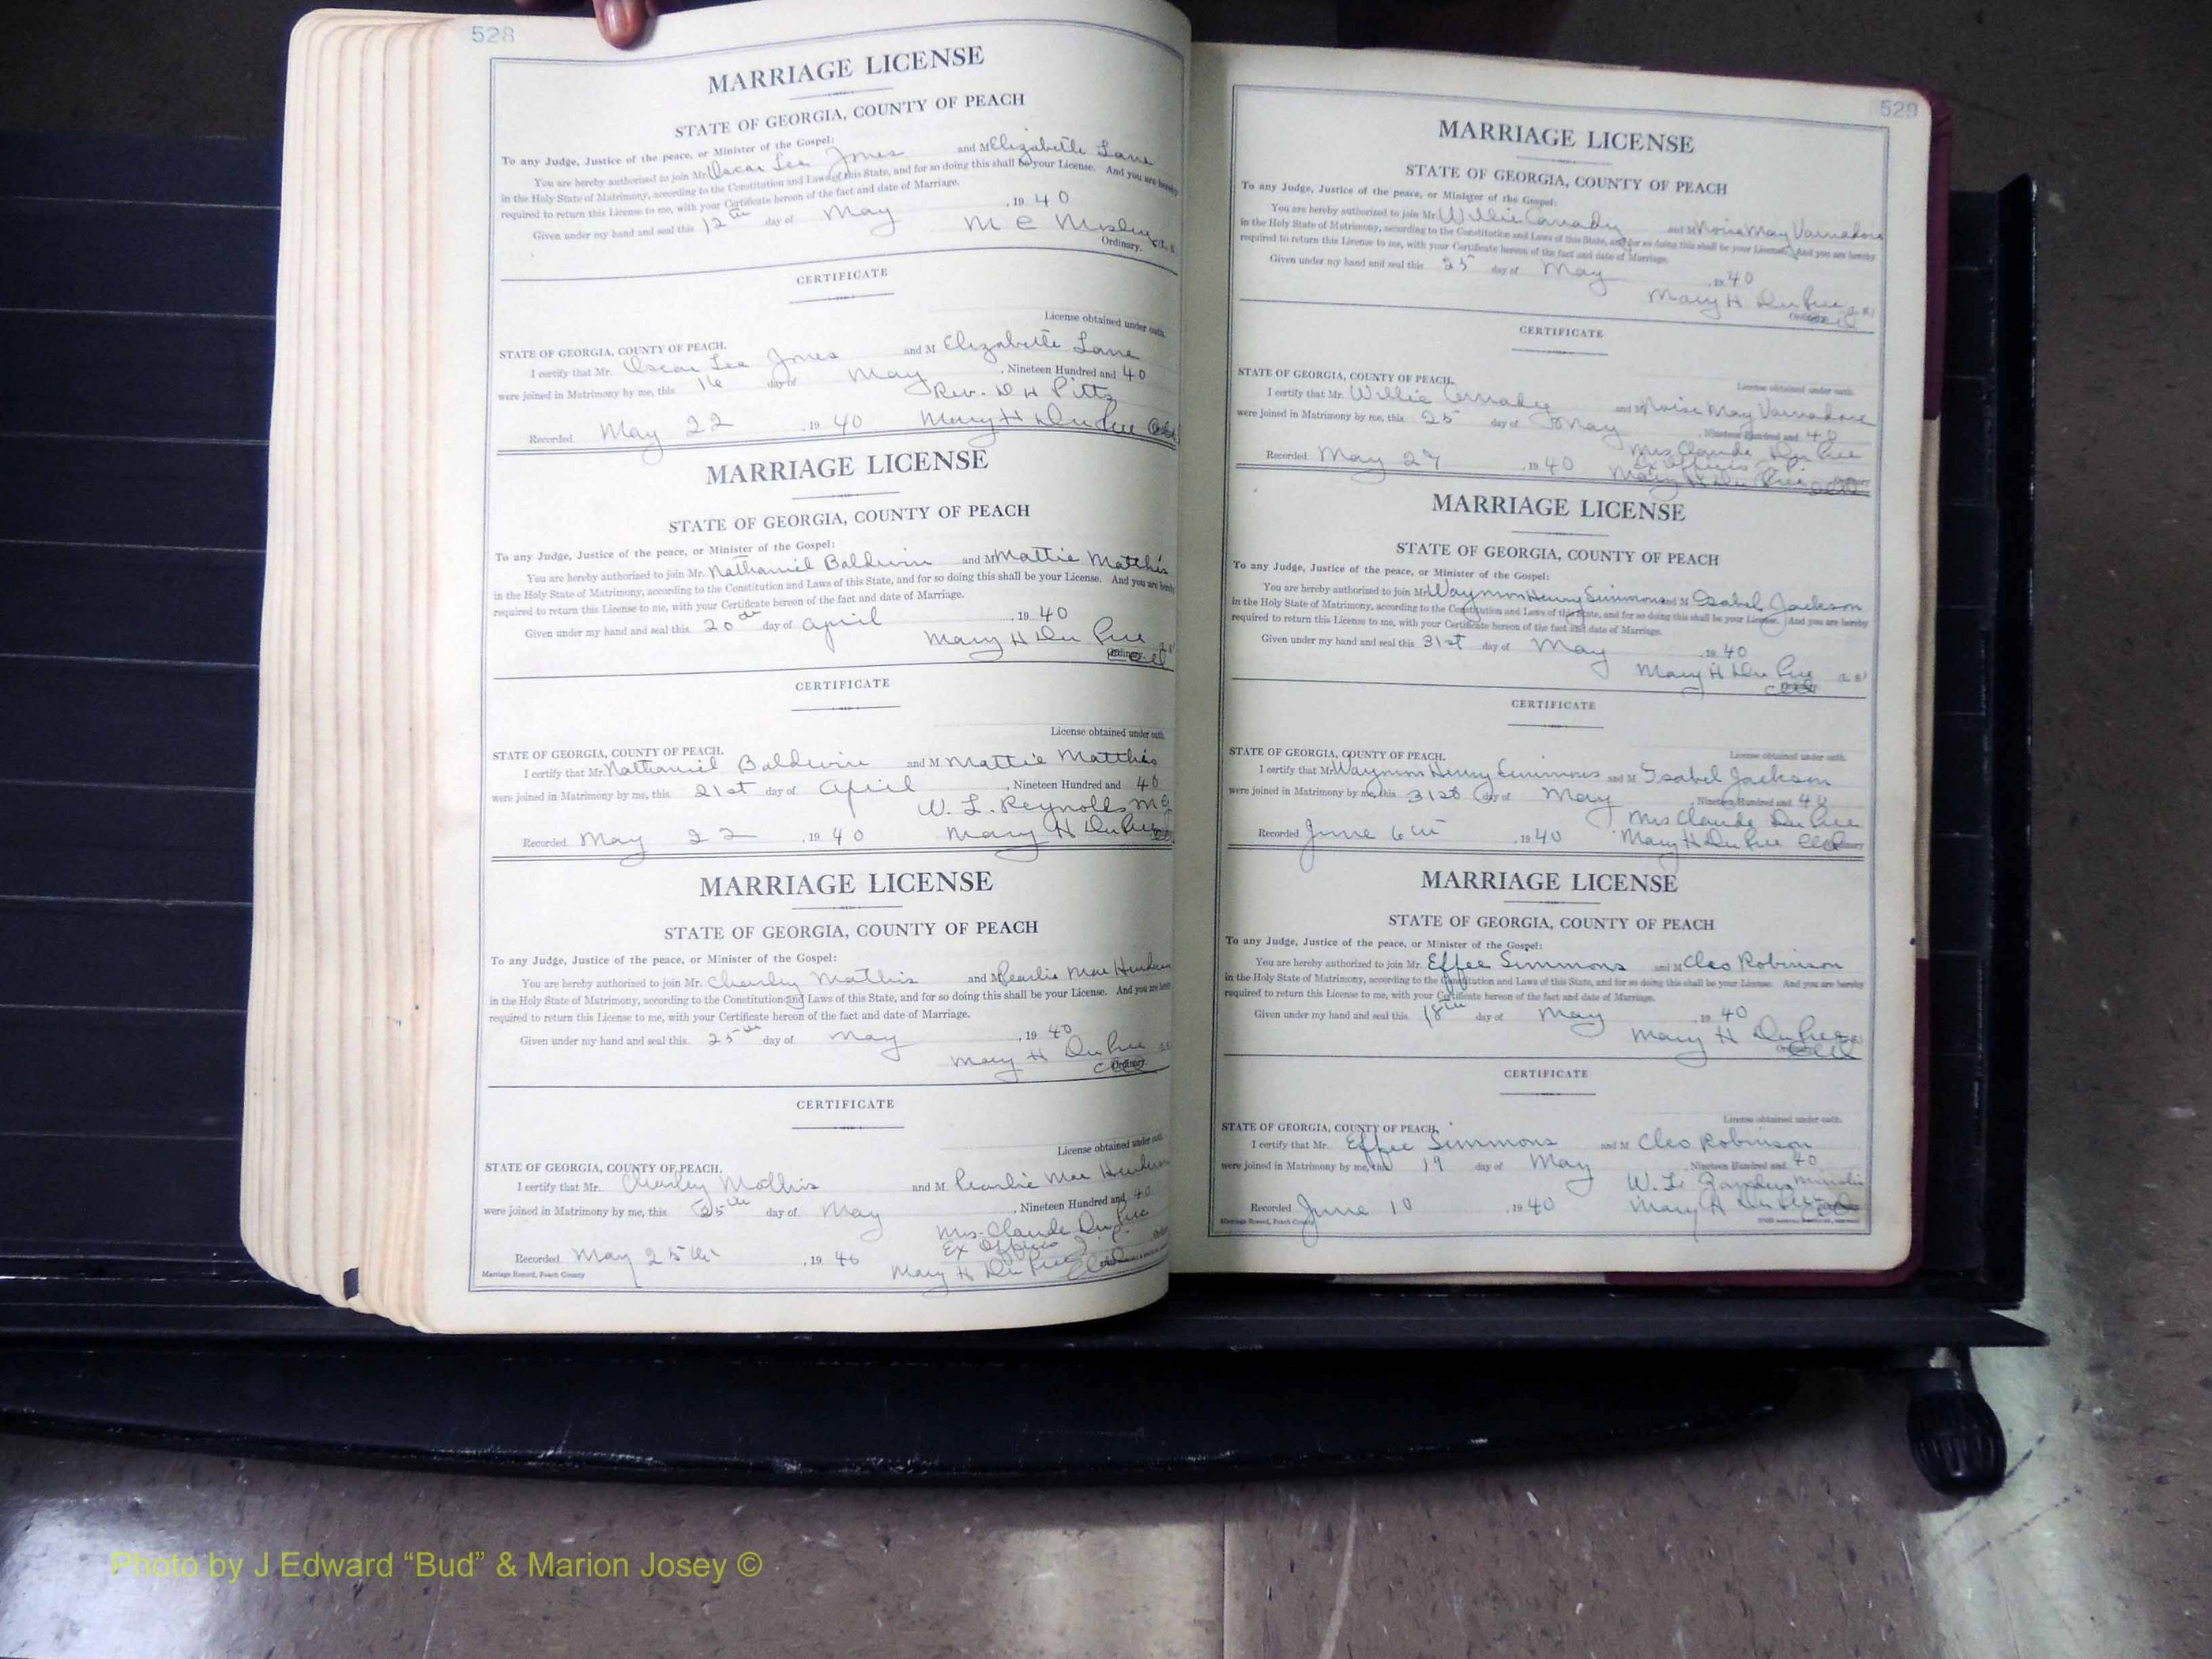 528
MARRIAGE LICENSE
STATE OF GEORGIA, COUNTY OF PEACH
To any Judge, Justice of the peace, or Minister of the Gospel:
You are hereby authorized to join Mr. Oscar Lee Jones and M Elizabeth Lane
in the Holy State of Matrimony, according to the Constitution and Laws of this State, and for so doing this shall be your License. And you are hereby
required to return this License to me, with your Certificate hereon of the fact and date of Marriage.
Given under my hand and seal this 12th day of May, 1940
M E Mosley
Ordinary.
CERTIFICATE
License obtained under oath.
STATE OF GEORGIA, COUNTY OF PEACH.
I certify that Mr. Oscar Lee Jones and M Elizabeth Lane
were joined in Matrimony by me, this 16 day of May, Nineteen Hundred and 40
Rev. D H Pitts
Recorded May 22, 1940 Mary H DuPree
MARRIAGE LICENSE
STATE OF GEORGIA, COUNTY OF PEACH
To any Judge, Justice of the peace, or Minister of the Gospel:
You are hereby authorized to join Mr. Nathaniel Baldwin and M Mattie Matthis
in the Holy State of Matrimony, according to the Constitution and Laws of this State, and for so doing this shall be your License. And you are hereby
required to return this License to me, with your Certificate hereon of the fact and date of Marriage.
Given under my hand and seal this 20th day of April, 1940
Mary H DuPree
Ordinary.
CERTIFICATE
License obtained under oath.
STATE OF GEORGIA, COUNTY OF PEACH.
I certify that Mr. Nathaniel Baldwin and M Mattie Matthis
were joined in Matrimony by me, this 21st day of April, Nineteen Hundred and 40
W. L. Reynolds M G
Recorded May 22, 1940 Mary H DuPree
MARRIAGE LICENSE
STATE OF GEORGIA, COUNTY OF PEACH
To any Judge, Justice of the peace, or Minister of the Gospel:
You are hereby authorized to join Mr. Charley Mathis and M Pearlie Mae
in the Holy State of Matrimony, according to the Constitution and Laws of this State, and for so doing this shall be your License. And you are hereby
required to return this License to me, with your Certificate hereon of the fact and date of Marriage.
Given under my hand and seal this 25th day of May, 1940
Mary H DuPree
Ordinary.
CERTIFICATE
License obtained under oath.
STATE OF GEORGIA, COUNTY OF PEACH.
I certify that Mr. Charley Mathis and M Pearlie Mae
were joined in Matrimony by me, this 25th day of May, Nineteen Hundred and 40
Mrs. Claude DuPree
Ex Officio J. P.
Recorded May 25th, 1940 Mary H DuPree
Marriage Record, Peach County
529
MARRIAGE LICENSE
STATE OF GEORGIA, COUNTY OF PEACH
To any Judge, Justice of the peace, or Minister of the Gospel:
You are hereby authorized to join Mr. Willie and M May Varnadore
in the Holy State of Matrimony, according to the Constitution and Laws of this State, and for so doing this shall be your License. And you are hereby
required to return this License to me, with your Certificate hereon of the fact and date of Marriage.
Given under my hand and seal this 25 day of May, 1940
Mary H DuPree
CERTIFICATE
License obtained under oath.
STATE OF GEORGIA, COUNTY OF PEACH.
I certify that Mr. Willie and M May Varnadore
were joined in Matrimony by me, this 25 day of May, Nineteen Hundred and 40
Mrs Claude DuPree
Ex Officio
Recorded May 27, 1940 Mary H DuPree
MARRIAGE LICENSE
STATE OF GEORGIA, COUNTY OF PEACH
To any Judge, Justice of the peace, or Minister of the Gospel:
You are hereby authorized to join Mr. Waymon Henry Simmons and M Isabel Jackson
in the Holy State of Matrimony, according to the Constitution and Laws of this State, and for so doing this shall be your License. And you are hereby
required to return this License to me, with your Certificate hereon of the fact and date of Marriage.
Given under my hand and seal this 31st day of May, 1940
Mary H DuPree
CERTIFICATE
License obtained under oath.
STATE OF GEORGIA, COUNTY OF PEACH.
I certify that Mr. Waymon Henry Simmons and M Isabel Jackson
were joined in Matrimony by me, this 31st day of May, Nineteen Hundred and 40
Mrs Claude DuPree
Recorded June 6th, 1940 Mary H DuPree
MARRIAGE LICENSE
STATE OF GEORGIA, COUNTY OF PEACH
To any Judge, Justice of the peace, or Minister of the Gospel:
You are hereby authorized to join Mr. Effee Simmons and M Cleo Robinson
in the Holy State of Matrimony, according to the Constitution and Laws of this State, and for so doing this shall be your License. And you are hereby
required to return this License to me, with your Certificate hereon of the fact and date of Marriage.
Given under my hand and seal this 18th day of May, 1940
Mary H DuPree
CERTIFICATE
License obtained under oath.
STATE OF GEORGIA, COUNTY OF PEACH.
I certify that Mr. Effee Simmons and M Cleo Robinson
were joined in Matrimony by me, this 19 day of May, Nineteen Hundred and 40
Recorded June 10, 1940 Mary H DuPree
Marriage Record, Peach County
Photo by J Edward “Bud” & Marion Josey ©